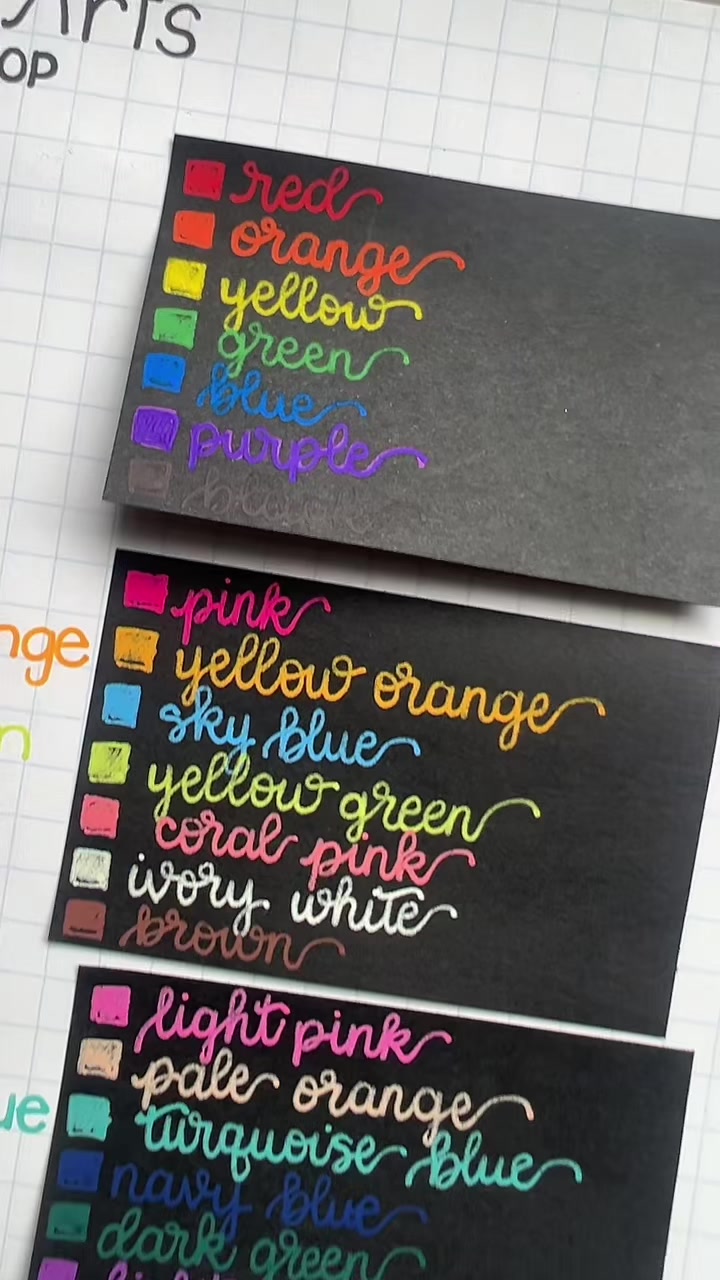 Arts
OP
red
orange
yellow
green
blue
purple
black
pink
yellow orange
sky blue
yellow green
coral pink
ivory white
brown
nge
n
light pink
pale orange
turquoise blue
navy blue
dark green
ue